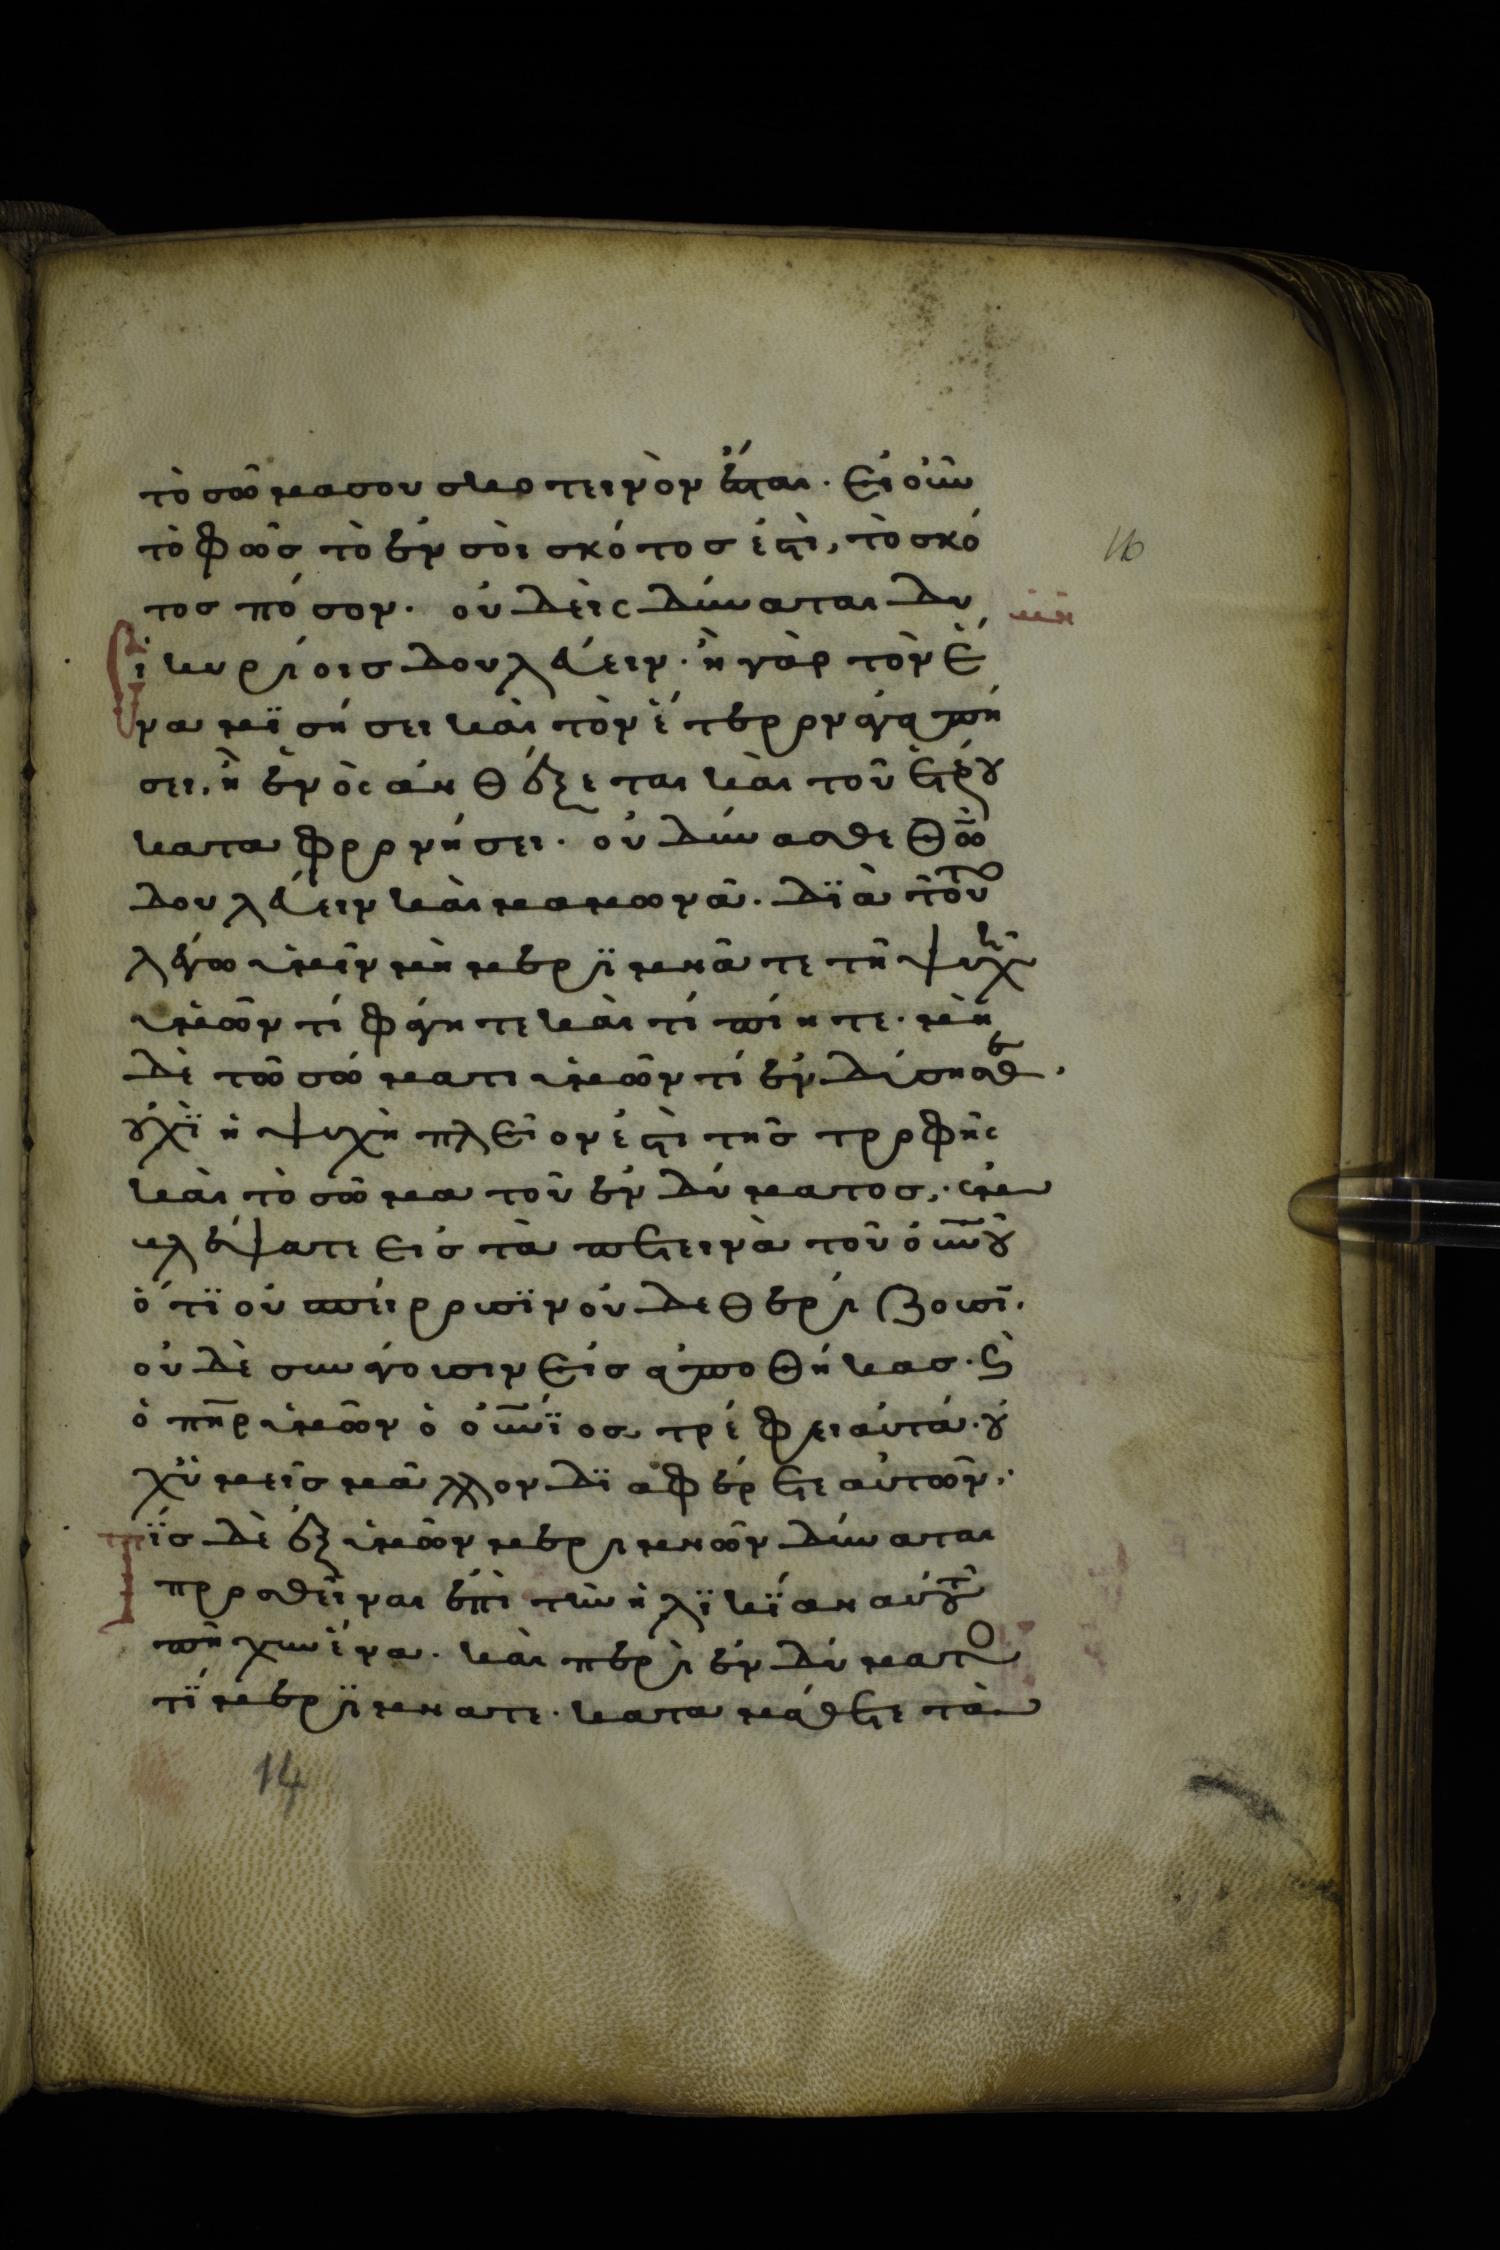 τὸ σῶμα σου σκοτεινὸν ἔσται. εἰ οὖν
16
τὸ φῶσ τὸ ἐν σοὶ σκότοσ ἐστὶ, τὸ σκό
τοσ πόσον. οὐδεὶς δύναται δυ
σὶ κυρίοισ δουλεύειν. ἢ γὰρ τὸν ἕ
να μϊσήσει καὶ τὸν ἕτερον ἀγαπή
σει, ἢ ἑνὸς ἀνθέξεται καὶ τοῦ ἑτέρου
καταφρονήσει. οὐ δύνασθε θ̅ω̅
δουλεύειν καὶ μαμωνᾶ. δϊὰ τοῦτο
λέγω ὑμῖν μὴ μερϊμνᾶτε τῆ ψυχῆ
ὑμῶν τί φάγητε καὶ τί πίητε. μὴ
δὲ τῶ σώματι ὑμῶν τί ἐνδύσησθε.
οὐχὶ ἡ ψυχὴ πλεῖον ἐστὶ τῆσ τροφῆς
καὶ τὸ σῶμα τοῦ ἐνδύματοσ,. ἐμ
βλέψατε εἰσ τὰ πετεινὰ τοῦ ο̅υ̅ν̅ο̅υ̅
ὅτϊ οὐ σπείρουσϊν οὐδε θερίζουσϊ.
οὐδὲ συνάγουσιν εἰσ ἀποθήκασ. καὶ
ὁ π̅η̅ρ ὑμῶν ὁ ο̅υ̅ν̅ϊοσ τρέφει αὐτά. οὐ
χ ὑμεῖσ μᾶλλον δϊαφέρετε αὐτῶν,.
τίσ δὲ ἐξ ὑμῶν μεριμνῶν δύναται
προσθεῖναι ἐπὶ τὴν ἡλϊκϊαν αὐτοῦ
πῆχυν ἕνα. καὶ περὶ ἐνδύματο
τϊ μερϊμνατε. καταμάθετε τὰ
14